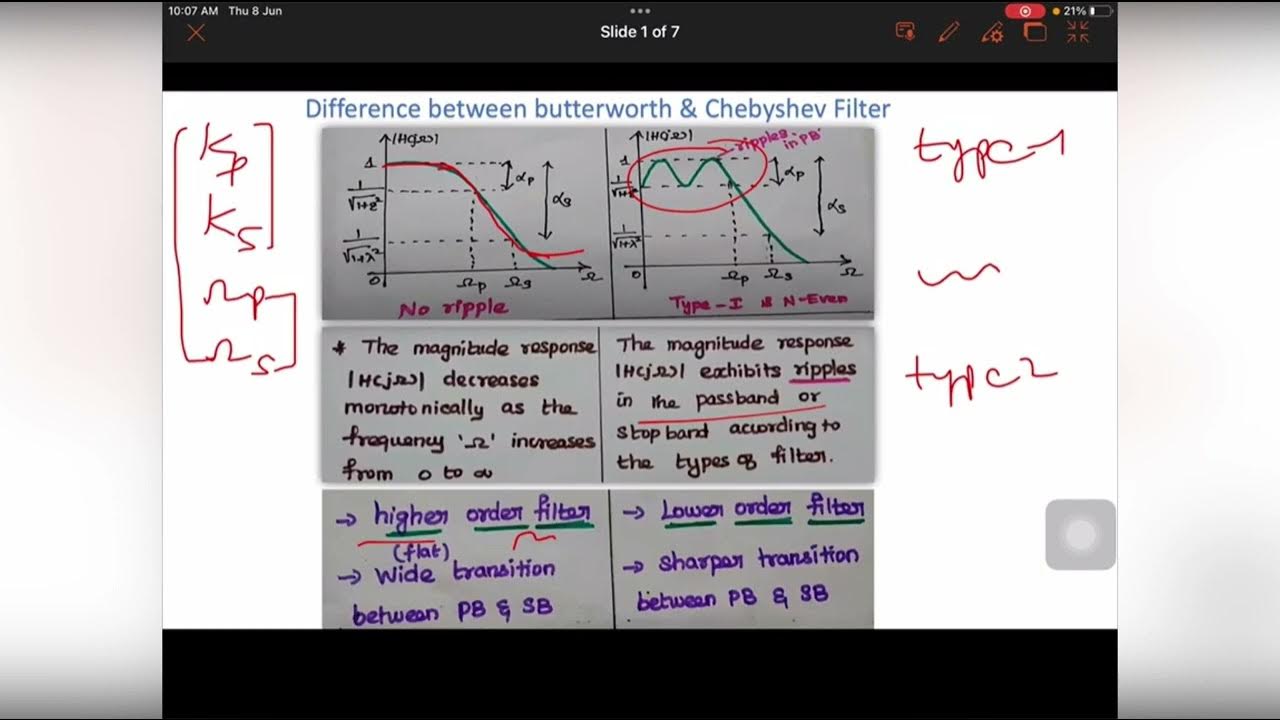 10:07 AM Thu 8 Jun
21%
Slide 1 of 7
Difference between butterworth & Chebyshev Filter
Kp
Ks
Ωp
Ωs
|H(jΩ)|
1
1/√1+ε²
1/√1+λ²
0
αp
αs
Ωp
Ωs
Ω
No ripple
|H(jΩ)|
ripples
in PB
1
1/√1+λ²
0
αp
αs
Ωp
Ωs
Ω
Type-I & N-Even
type-1
type2
* The magnitude response
|H(jΩ)| decreases
monotonically as the
frequency 'Ω' increases
from 0 to ∞
The magnitude response
|H(jΩ)| exhibits ripples
in the passband or
stop band acording to
the types of filter.
→ higher order filter
(flat)
→ wide transition
between PB & SB
→ Lower order filter
→ sharper transition
between PB & SB